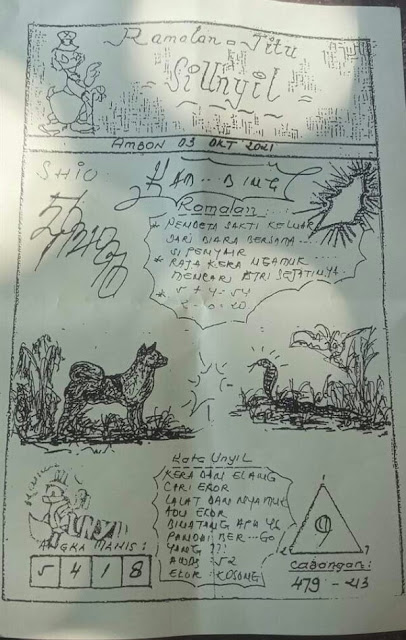 Ramalan - Jitu
SiUnyil
AMBON 03 OKT 2021
SHIO
KAMBING
Ramalan
* PENDETA SAKTI KELUAR
DARI BIARA BERSAMA ....
SI PENYAIR
* RAJA KERA NGAMUK ...
MENCARI ISTRI SEJATINYA
* 5 + 4 = 54
Kata Unyil
KERA DAN ELANG
CARI EKOR
LALAT DAN NYAMUK
ADU EKOR
BINATANG APA YG
PANDAI BER...GO
YANG ???
AWAS = 52
EKOR : KOSONG
ANGKA MANIS :
5 4 1 8
9
2 7
Cadangan :
479 - 213